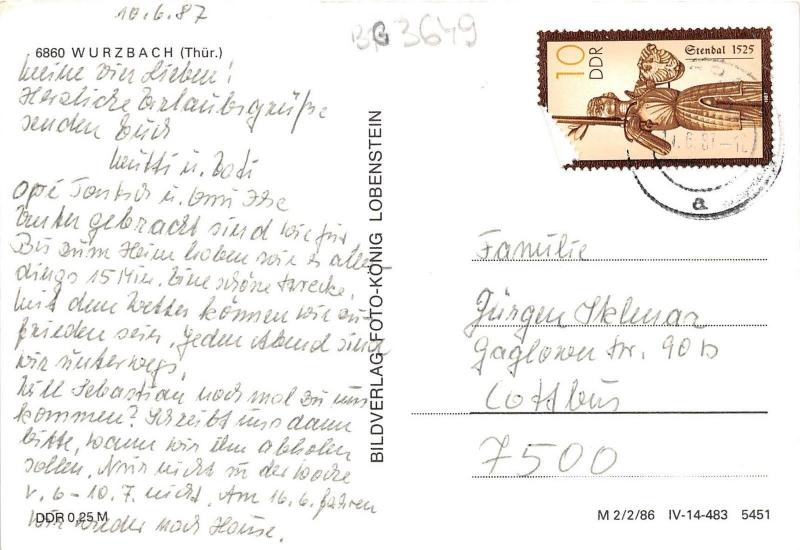 10.6.87
BG 3649
6860 WURZBACH (Thür.)
Meine vier Lieben!
Herzliche Urlaubsgrüße
senden Euch
Mutti u. Vati
Opi u. Omi Ilse
Unter gebracht sind wir gut
Bis zum Heim haben wir es aller
dings 15 Min. Eine schöne Strecke.
Mit dem Wetter können wir zu
frieden sein. Jeden Abend sind
wir unterwegs.
Will Sebastian noch mal zu uns
kommen? Schreibt uns dann
bitte, wann wir ihn abholen
sollen. Nur nicht in der Woche
v. 6-10.7. nicht. Am 16.6. fahren
wir wieder nach Hause.
DDR 0,25 M
BILDVERLAG FOTO-KÖNIG LOBENSTEIN
10
DDR
Stendal 1525
.6.87-12
a
Familie
Jürgen
Str. 90 b
Cottbus
7500
M 2/2/86 IV-14-483 5451